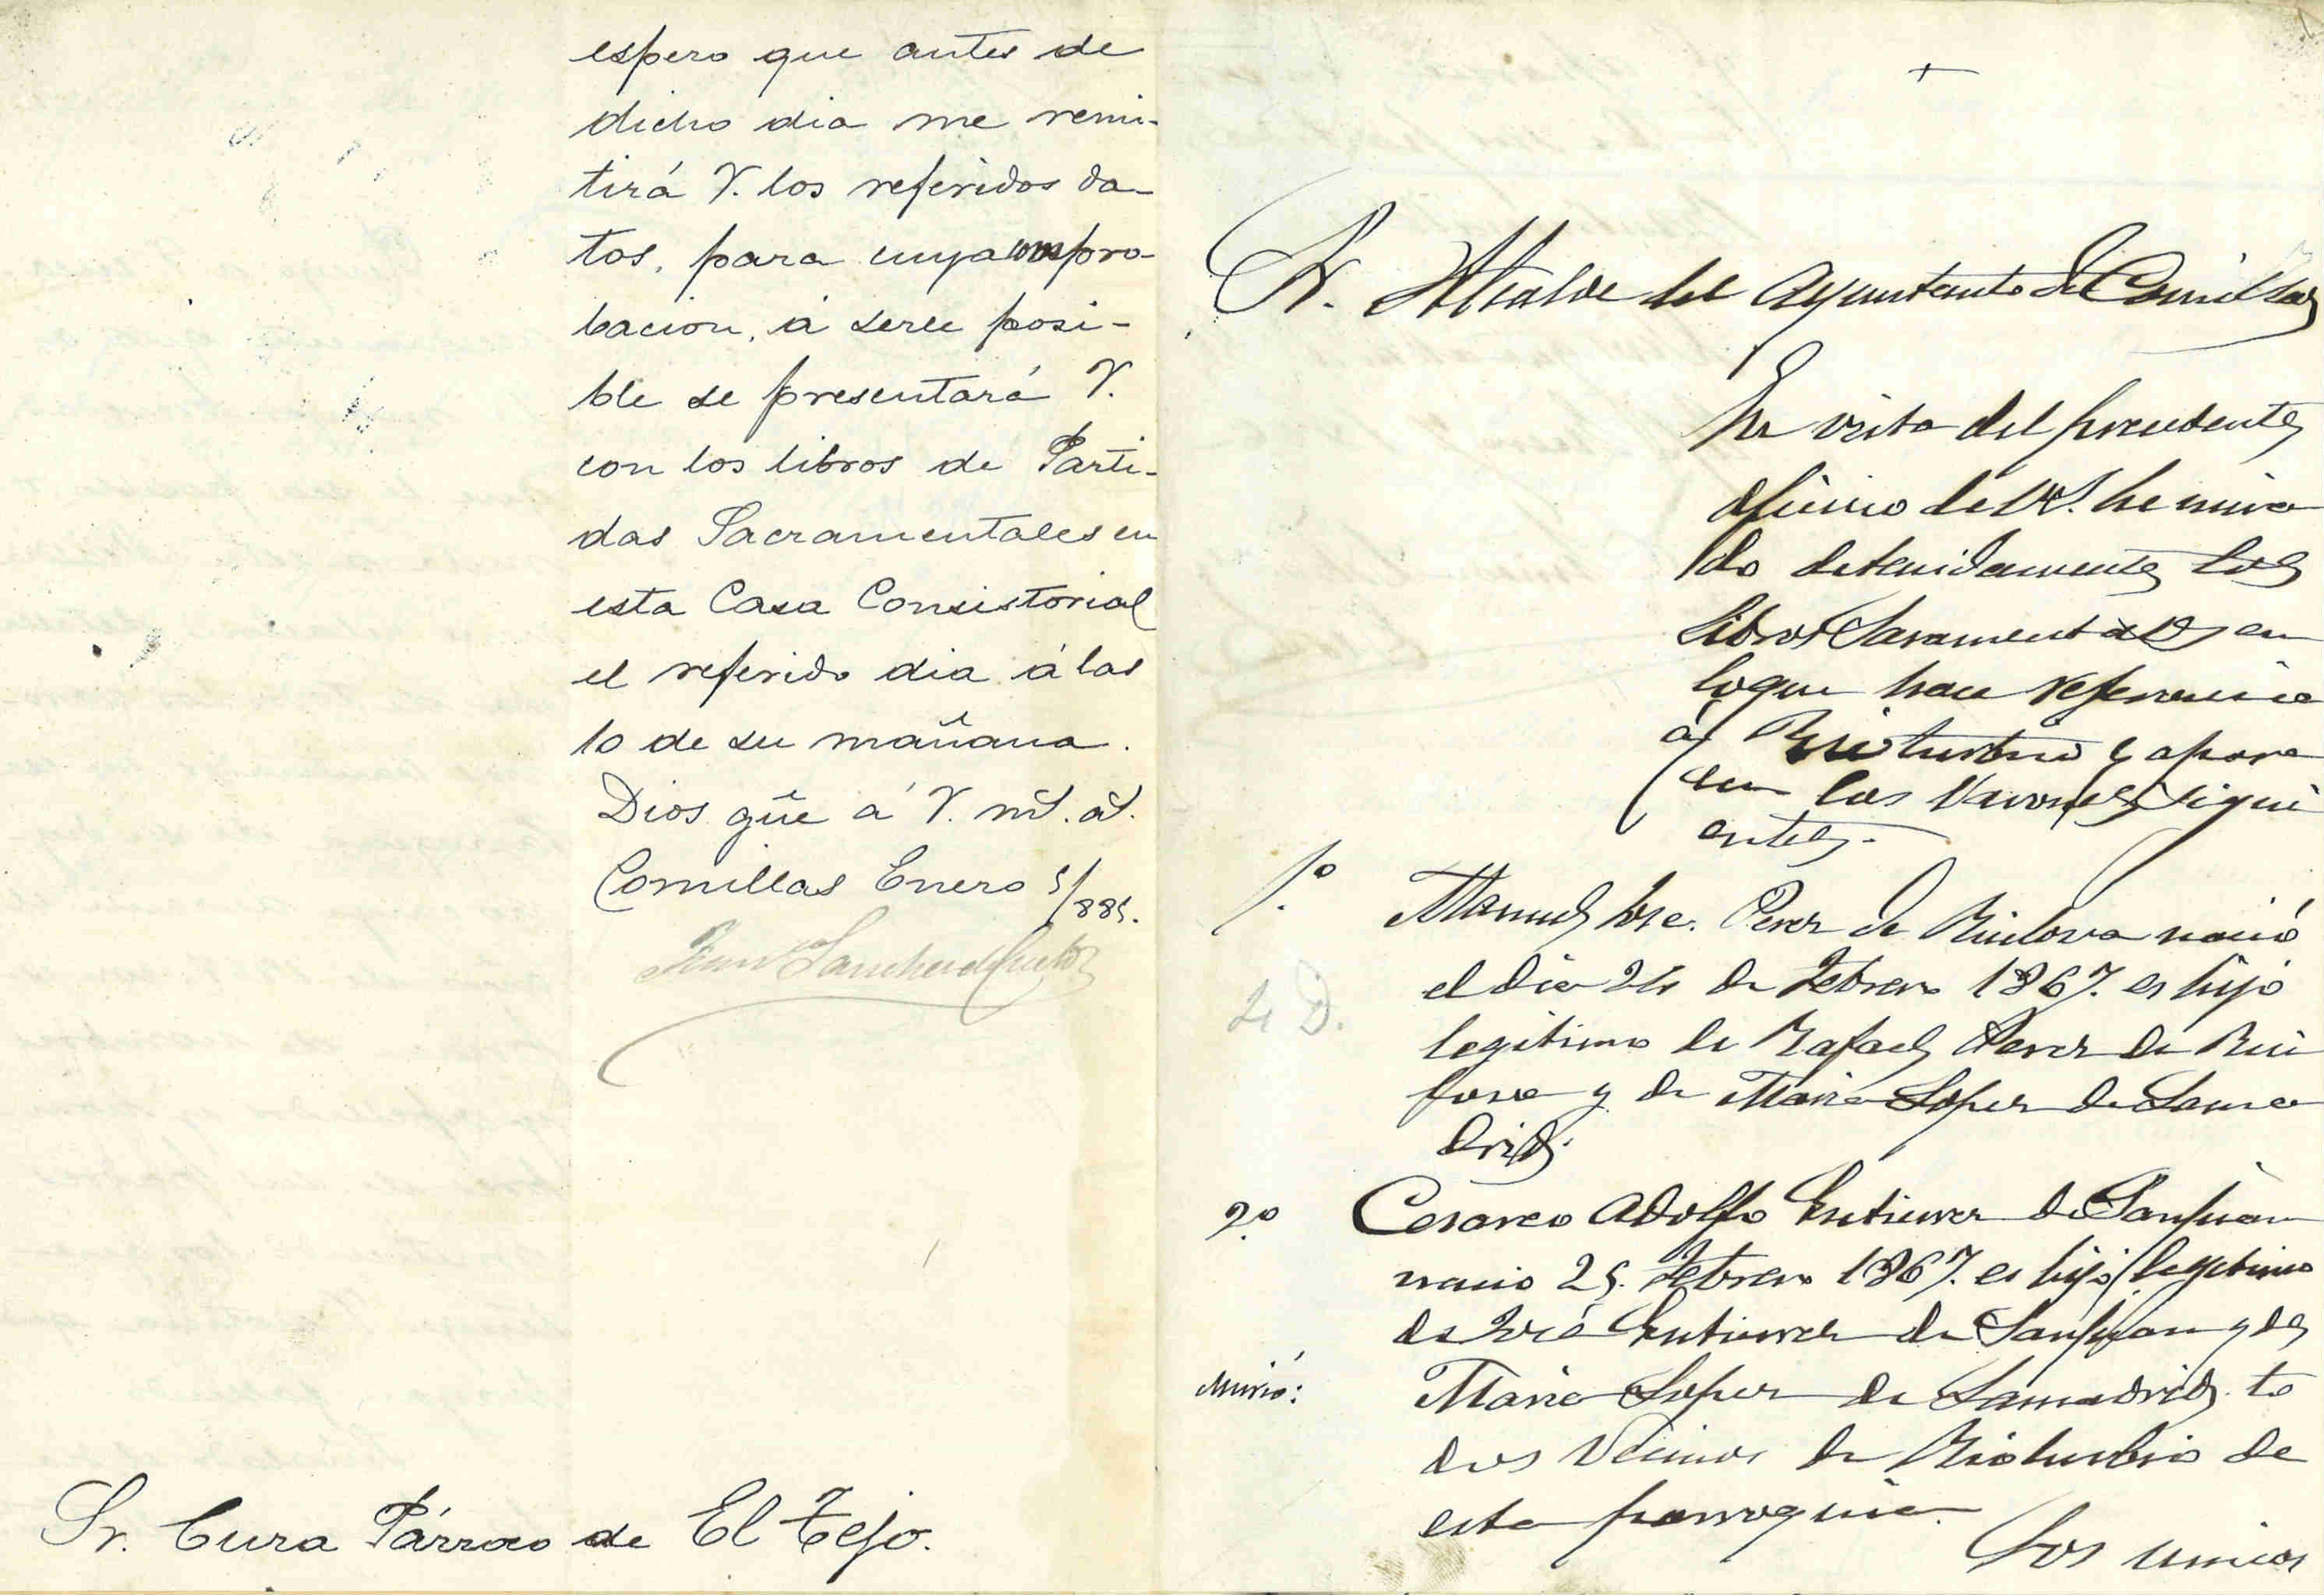 espero que antes de
dicho dia me remi-
tirá V. los referidos da-
tos, para cuya compro-
bacion, á serle posi-
ble se presentará V.
con los libros de Parti-
das Sacramentales en
esta Casa Consistorial
el referido dia á las
10 de su mañana.
Dios gue á V. ms. as.
Comillas Enero 5/885.
Sr. Cura Párroco de El Tejo.
+
Sr. Alcalde del Ayuntanto de Comillas
En vista del precedente
oficio de V.S. he mira
do detenidamente los
Libros Sacramentales en
loque hace referencia
á Rioturbio y apare
cen los Varones sigui
entes.
1º Manuel Jose. Perez de Riulova nació
el dia 24 de Febrero 1867. es hijo
4 D.
legitimo de Rafael Perez de
y de Maria Lopez de Lama
drid.
2º Cesareo Adolfo Gutierrez de Sanjuan
nacio 25. Febrero 1867. es hijo legitimo
de José Gutierrez de Sanjuan y de
Murió: Maria Lopez de Lamadrid. to
dos Vecinos de Rioturbio de
esta parroquia.
Los unicos